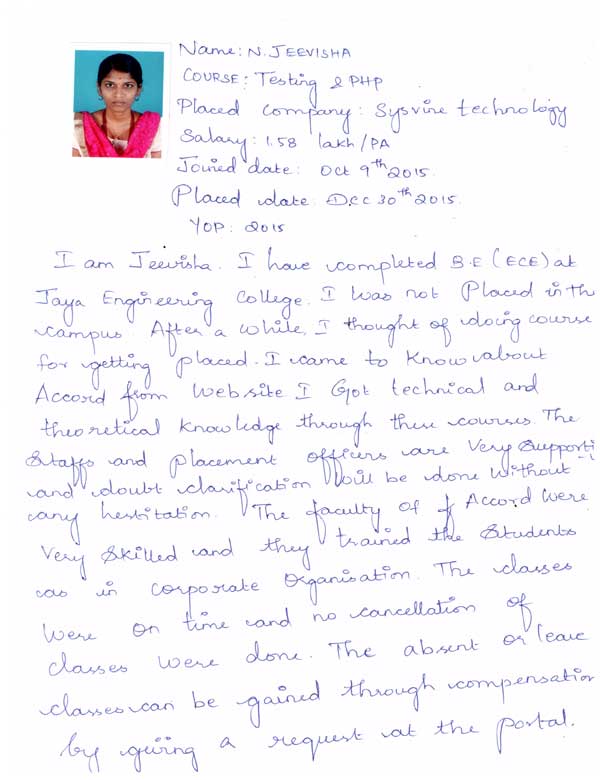 Name: N. JEEVISHA
COURSE: Testing & PHP
Placed company: Sysvine technology
Salary: 1.58 lakh/PA
Joined date: Oct 9th 2015.
Placed date: Dec 30th 2015.
YOP: 2015
I am Jeevisha. I have completed B.E (ECE) at
Jaya Engineering College. I was not Placed in the
campus After a while, I thought of doing course
for getting placed. I came to know about
Accord from website I Got technical and
theoretical knowledge through these courses. The
Staffs and placement officers are very Supporti
and doubt clarification will be done without
any hestitation. The faculty of Accord were
very skilled and they trained the students
as in corporate Organisation. The classes
were on time and no cancellation of
classes were done. The absent or leave
classes can be gained through compensation
by giving a request at the portal.